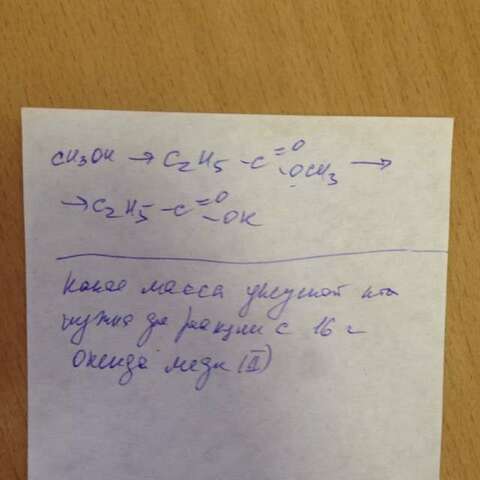 CH3OH → C2H5 -C =O -OCH3 →
→ C2H5 -C =O -OH
Какая масса уксусной к-ты
нужна для реакции с 16 г
оксида меди (II)